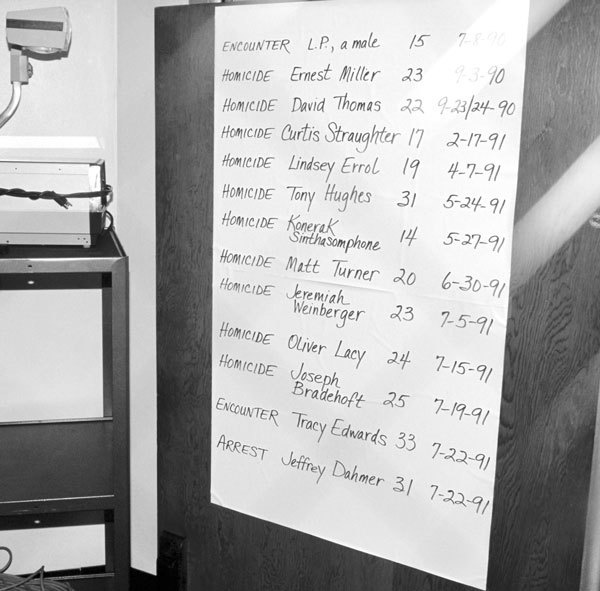 ENCOUNTER L.P., a male 15 7-8-90
HOMICIDE Ernest Miller 23 9-3-90
HOMICIDE David Thomas 22 9-23/24-90
HOMICIDE Curtis Straughter 17 2-17-91
HOMICIDE Lindsey Errol 19 4-7-91
HOMICIDE Tony Hughes 31 5-24-91
HOMICIDE Konerak
Sinthasomphone 14 5-27-91
HOMICIDE Matt Turner 20 6-30-91
HOMICIDE Jeremiah
Weinberger 23 7-5-91
HOMICIDE Oliver Lacy 24 7-15-91
HOMICIDE Joseph
Bradehoft 25 7-19-91
ENCOUNTER Tracy Edwards 33 7-22-91
ARREST Jeffrey Dahmer 31 7-22-91